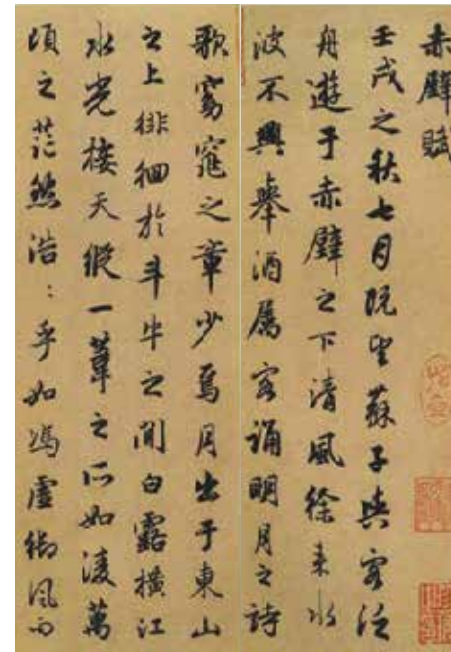 赤壁賦
壬戌之秋七月既望蘇子與客泛
舟遊于赤壁之下清風徐来水
波不興舉酒属客誦明月之詩
歌窈窕之章少焉月出于東山
之上徘徊於斗牛之間白露橫江
水光接天縱一葦之所如凌萬
頃之茫然浩：乎如馮虛御風而